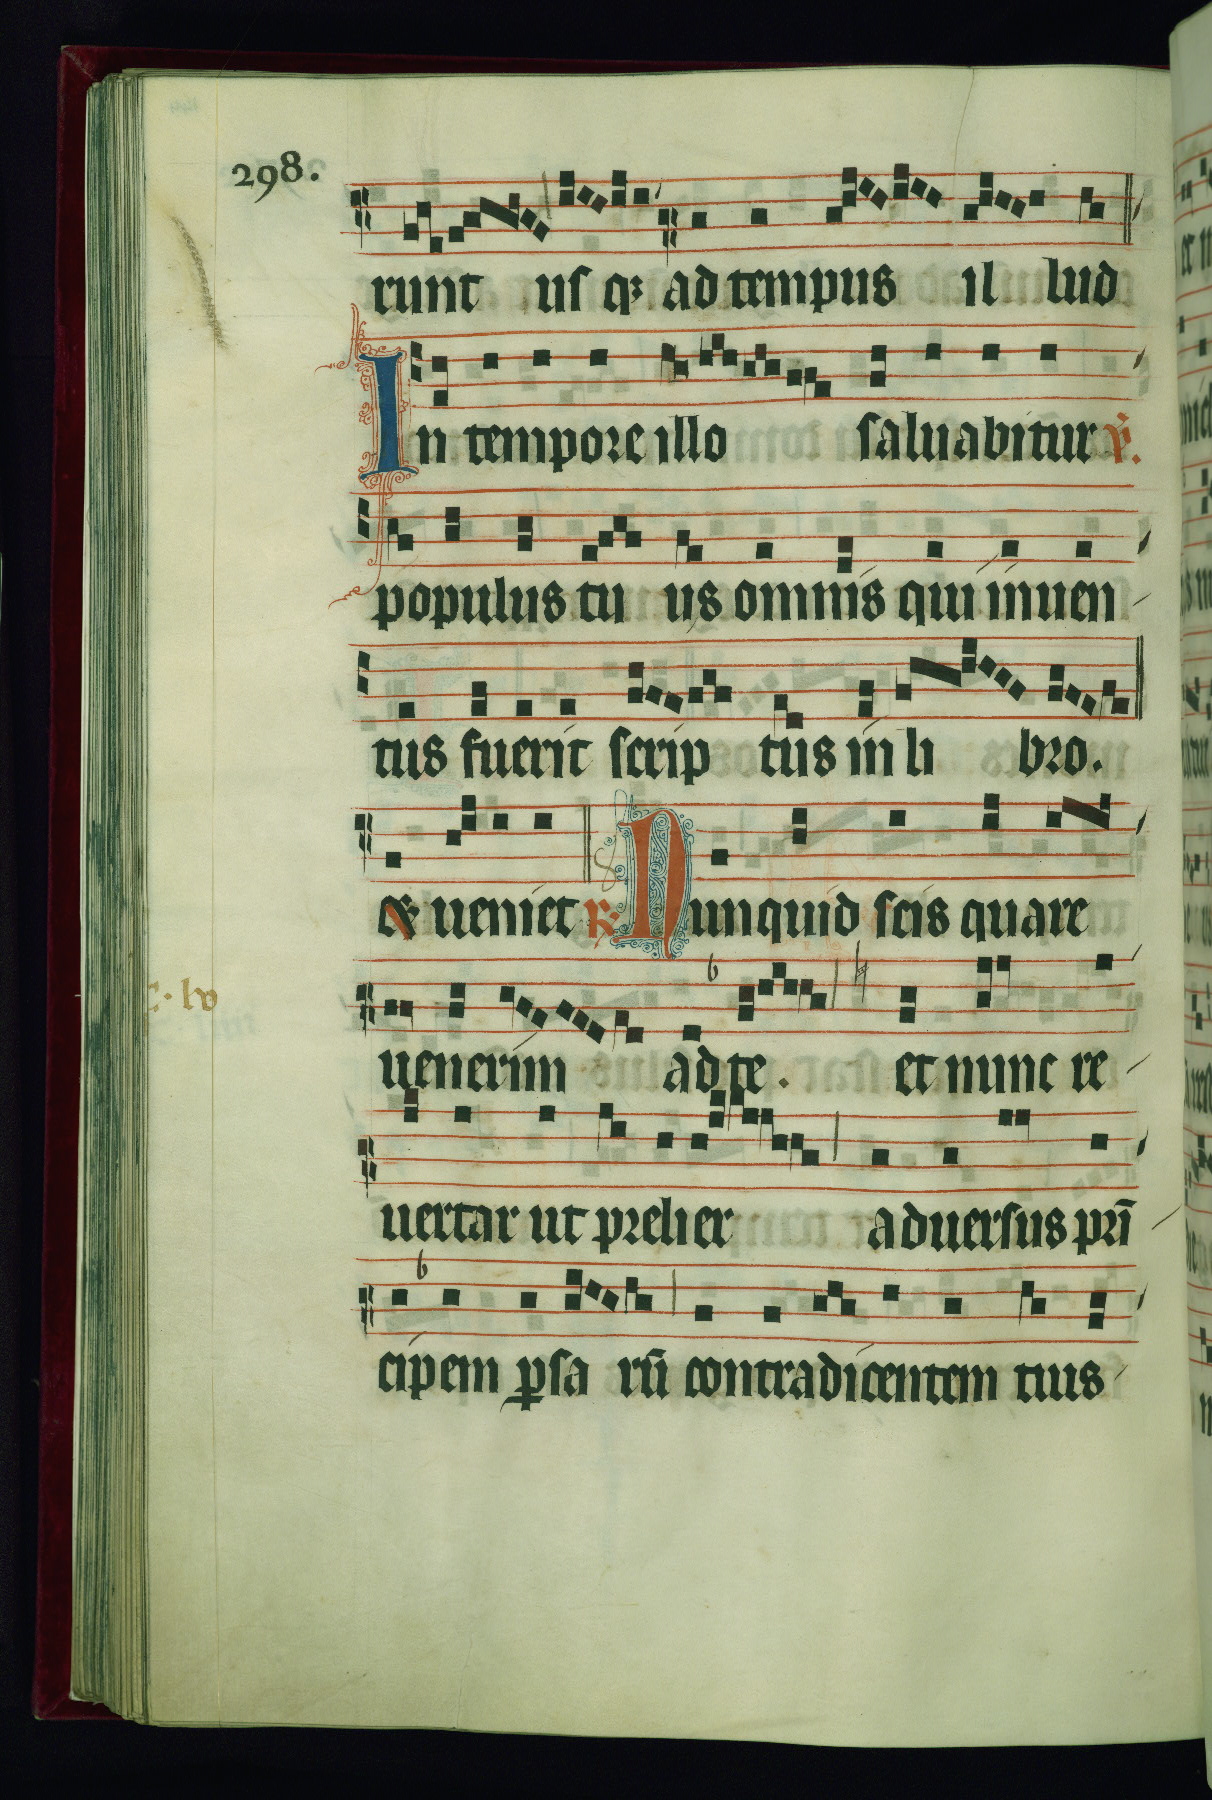 298.
runt uſ qꝫ ad tempus il lud
In tempore illo ſaluabitur ℣.
populus tu us omnis qui inuen
tus fuerit ſcrip tus in li bro.
& ueniet ℟ Nunquid ſcis quare
uenerim ad te . et nunc re
uertar ut prelier aduerſus prī
cipem ꝑſa rū contradicentem tuis